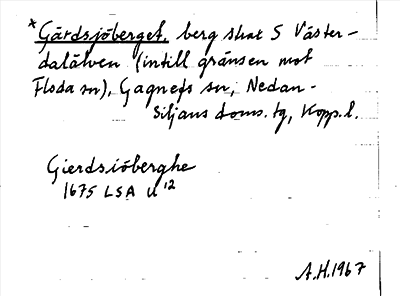 *Gärdsjöberget, berg strax S Väster-
dalälven (intill gränsen mot
Floda sn), Gagnefs sn, Nedan-
Siljans doms. tg, Kopp. l.
Gierdsiöberghe
1675 LSA U 12
A.H. 1967